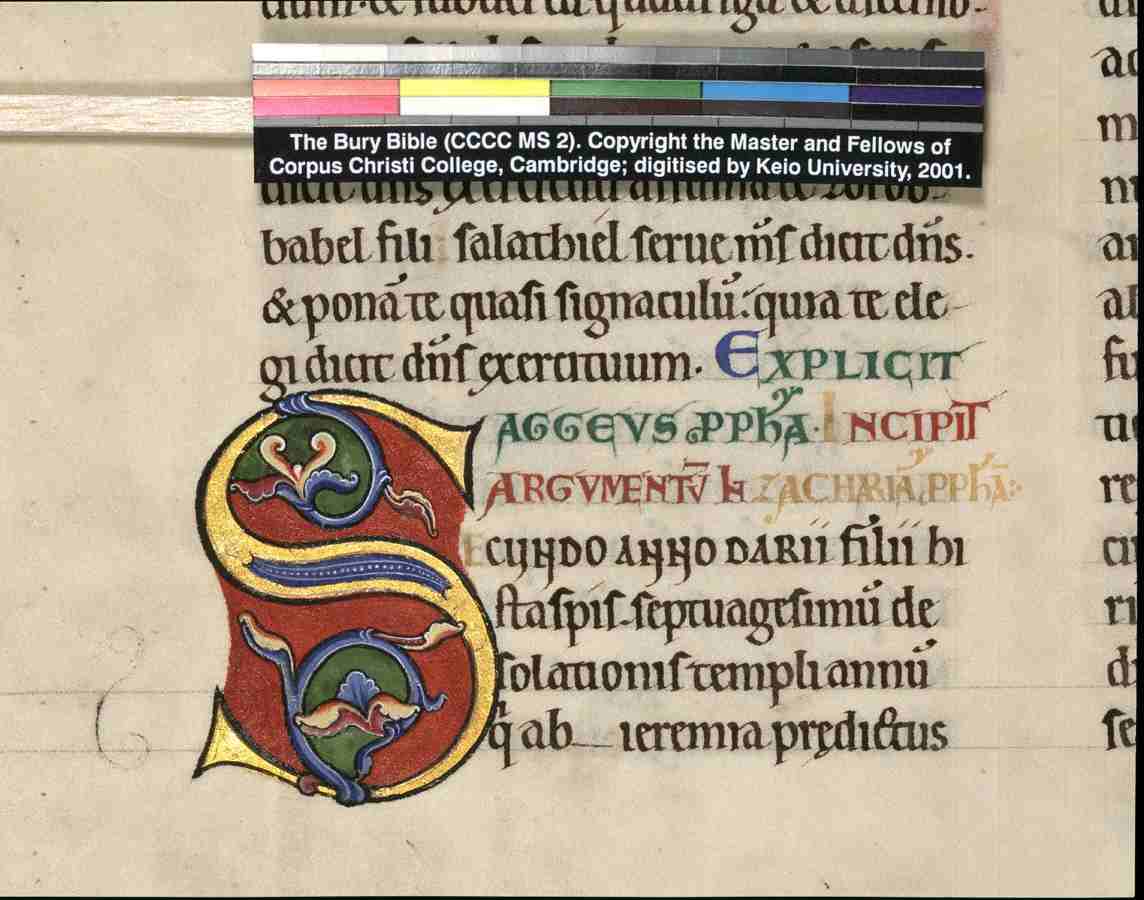 The Bury Bible (CCCC MS 2). Copyright the Master and Fellows of
Corpus Christi College, Cambridge; digitised by Keio University, 2001.
babel fili salathiel serue m̄s dicit dn̄s.
& ponā te quasi signaculū. quia te ele
gi dicit dn̄s exercituum. EXPLICIT
AGGEVS PPHA. INCIPIT
ARGVMENTV̄ IN ZACHARIĀ PPHĀ
SECUNDO ANNO DARII filii hi
staspis. septuagesimū de
solationis templi annū
q̄ ab ieremia prędictus